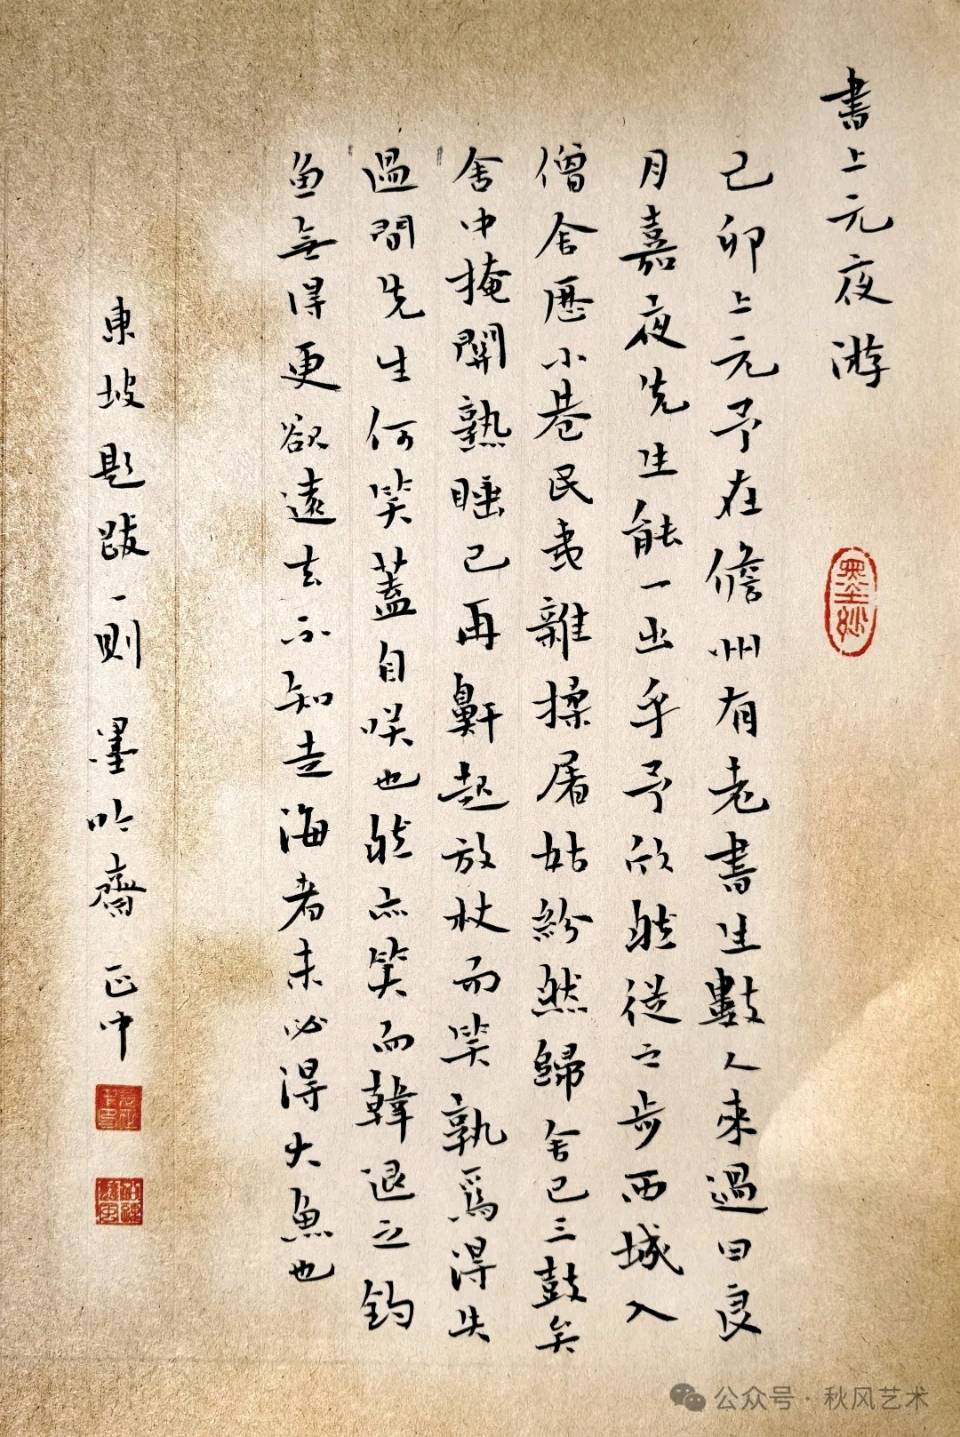 書上元夜游
墨妙
己卯上元予在儋州有老書生數人來過曰良
月嘉夜先生能一出乎予欣然從之步西城入
僧舍歷小巷民夷雜揉屠姑紛然歸舍已三鼓矣
舍中掩關熟睡已再鼾起放杖而笑孰爲得失
過問先生何笑蓋自咲也然亦笑而韓退之釣
魚無得更欲遠去不知走海者未必得大魚也
東坡題跋一則 墨吟齋 正中
公众号 · 秋风艺术